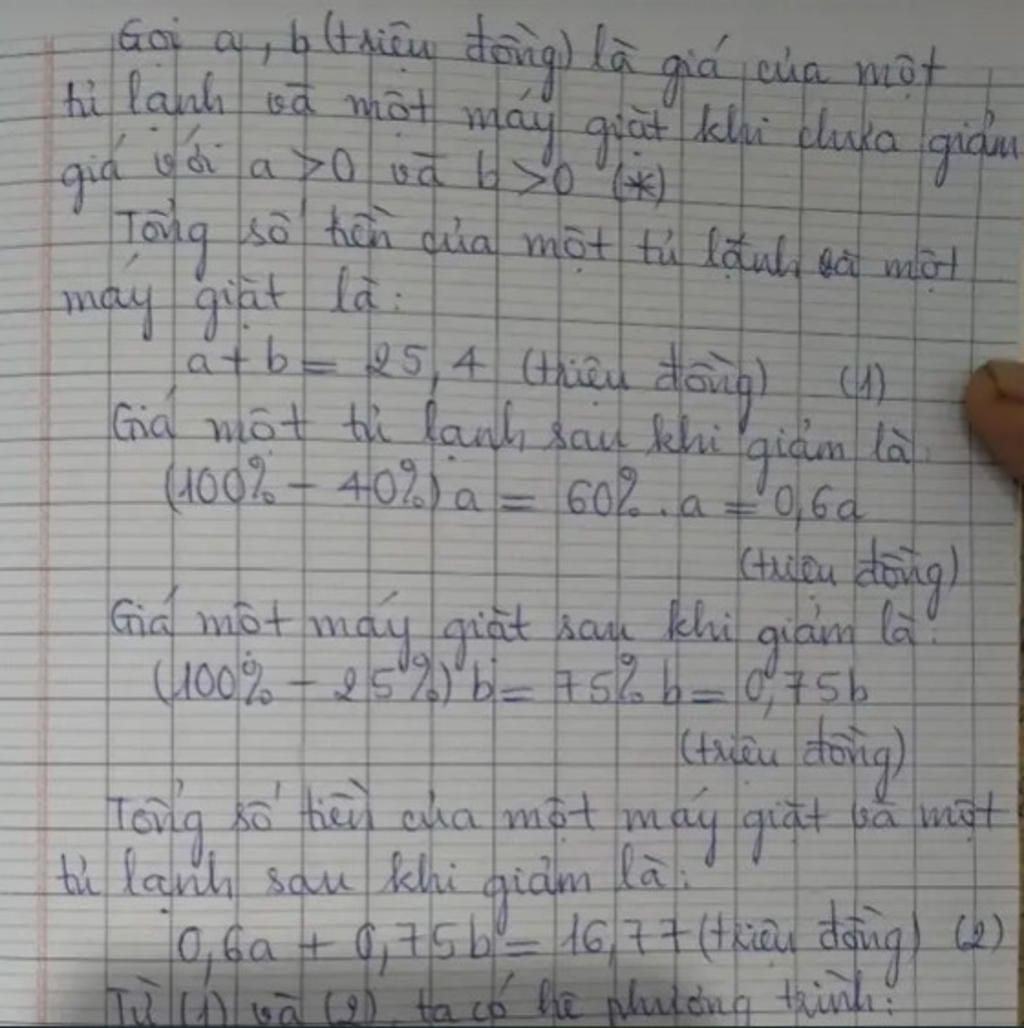 Gọi a, b (triệu đồng) là giá của một
tủ lạnh và một máy giặt khi chưa giảm
giá với a > 0 và b > 0 (*)
Tổng số tiền của một tủ lạnh và một
máy giặt là:
a + b = 25,4 (triệu đồng) (1)
Giá một tủ lạnh sau khi giảm là:
(100% - 40%) a = 60% . a = 0,6a
(triệu đồng)
Giá một máy giặt sau khi giảm là:
(100% - 25%) b = 75% b = 0,75b
(triệu đồng)
Tổng số tiền của một máy giặt và một
tủ lạnh sau khi giảm là:
0,6a + 0,75b = 16,77 (triệu đồng) (2)
Từ (1) và (2), ta có hệ phương trình: